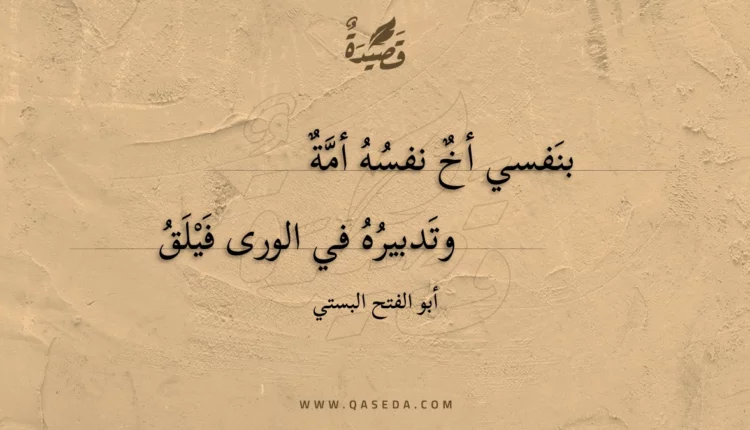 قَصِيْدَةٌ
بنَفسي أخٌ نفسُهُ أمَّةٌ
وتَدبيرُهُ في الورى فَيْلَقُ
أبو الفتح البستي
WWW.QASEDA.COM